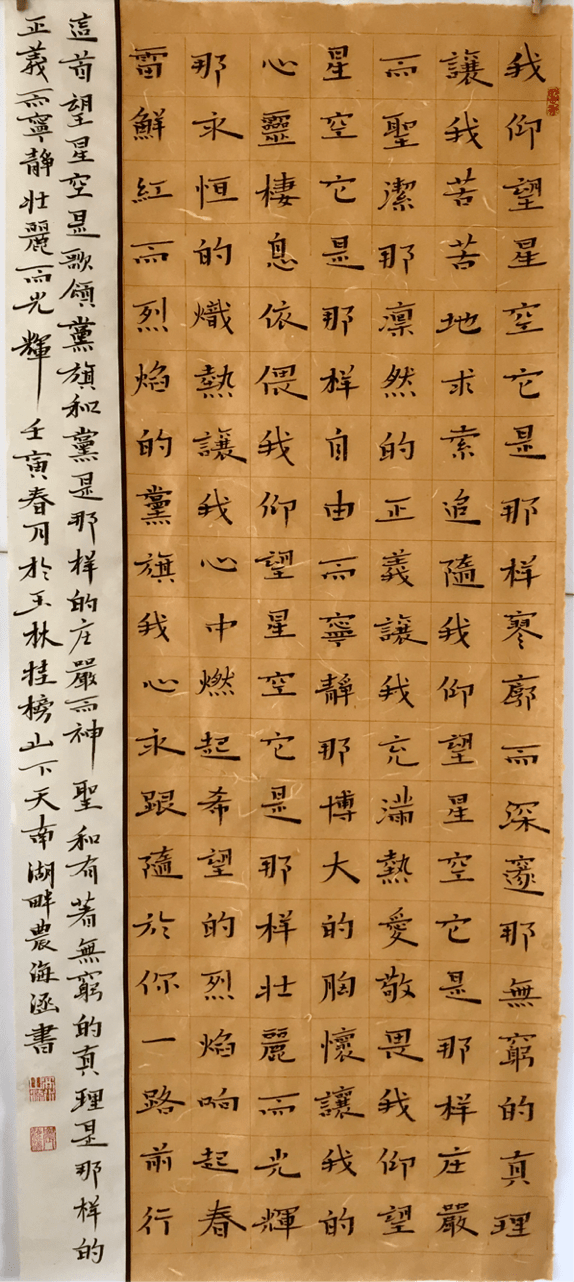 我仰望星空它是那样寥廓而深邃那無窮的真理
讓我苦苦地求索追隨我仰望星空它是那样庄嚴
而聖潔那凛然的正義讓我充滿熱愛敬畏我仰望
星空它是那样自由而寧靜那博大的胸懷讓我的
心靈棲息依偎我仰望星空它是那样壮麗而光輝
那永恒的熾熱讓我心中燃起希望的烈焰响起春
雷鮮紅而烈焰的黨旗我心永跟隨於你一路前行
這首望星空是歌頌黨旗和黨是那样的庄嚴而神聖和有着無窮的真理是那样的
正義而寧靜壮麗而光輝 壬寅春月於玉林挂榜山下天南湖畔農海涵書